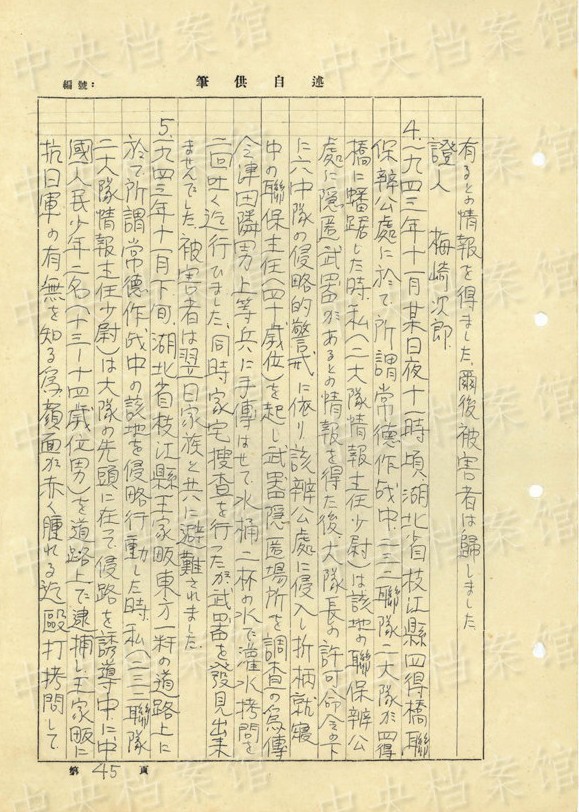 編號：
筆供自述
有るとの情報を得ました、爾後被害者は歸しました
證人　梅崎次郎
4.一九四三年十一月某日夜十一時頃、湖北省枝江縣四得橋聯
保辦公處に於て所謂常德作战中、二三二聯隊二大隊が四得
橋に蟠踞した時、私(二大隊情報主任少尉)は該地の聯保辦公
處に隱匿武器があるとの情報を得た後、大隊長の許可命令の下
に六中隊の侵略的警戒に依り該辦公處に侵入し折柄就寢
中の聯保主任(四十歲位)を起し武器隱匿場所を調查の為、傳
令津田隣男上等兵に手傳はせて水桶二杯の水で灌水拷問を
二回吐く迄行ひました、同時家宅搜查を行ったが武器を發見出来
ませんでした、被害者は翌日家族と共に避難されました
5.一九四三年十一月下旬湖北省枝江縣王家畈東方一粁の道路上に
於て所謂常德作战中の該地を侵略行動した時、私(二三二聯隊
二大隊情報主任少尉)は大隊の先頭に在って侵路を誘導中に、中
國人民少年二名(十三ー十四歲位男)を道路上で逮捕し王家畈に
抗日軍の有無を知る為、顏面が赤く腫れる迄毆打拷問して
第45頁
中央档案馆